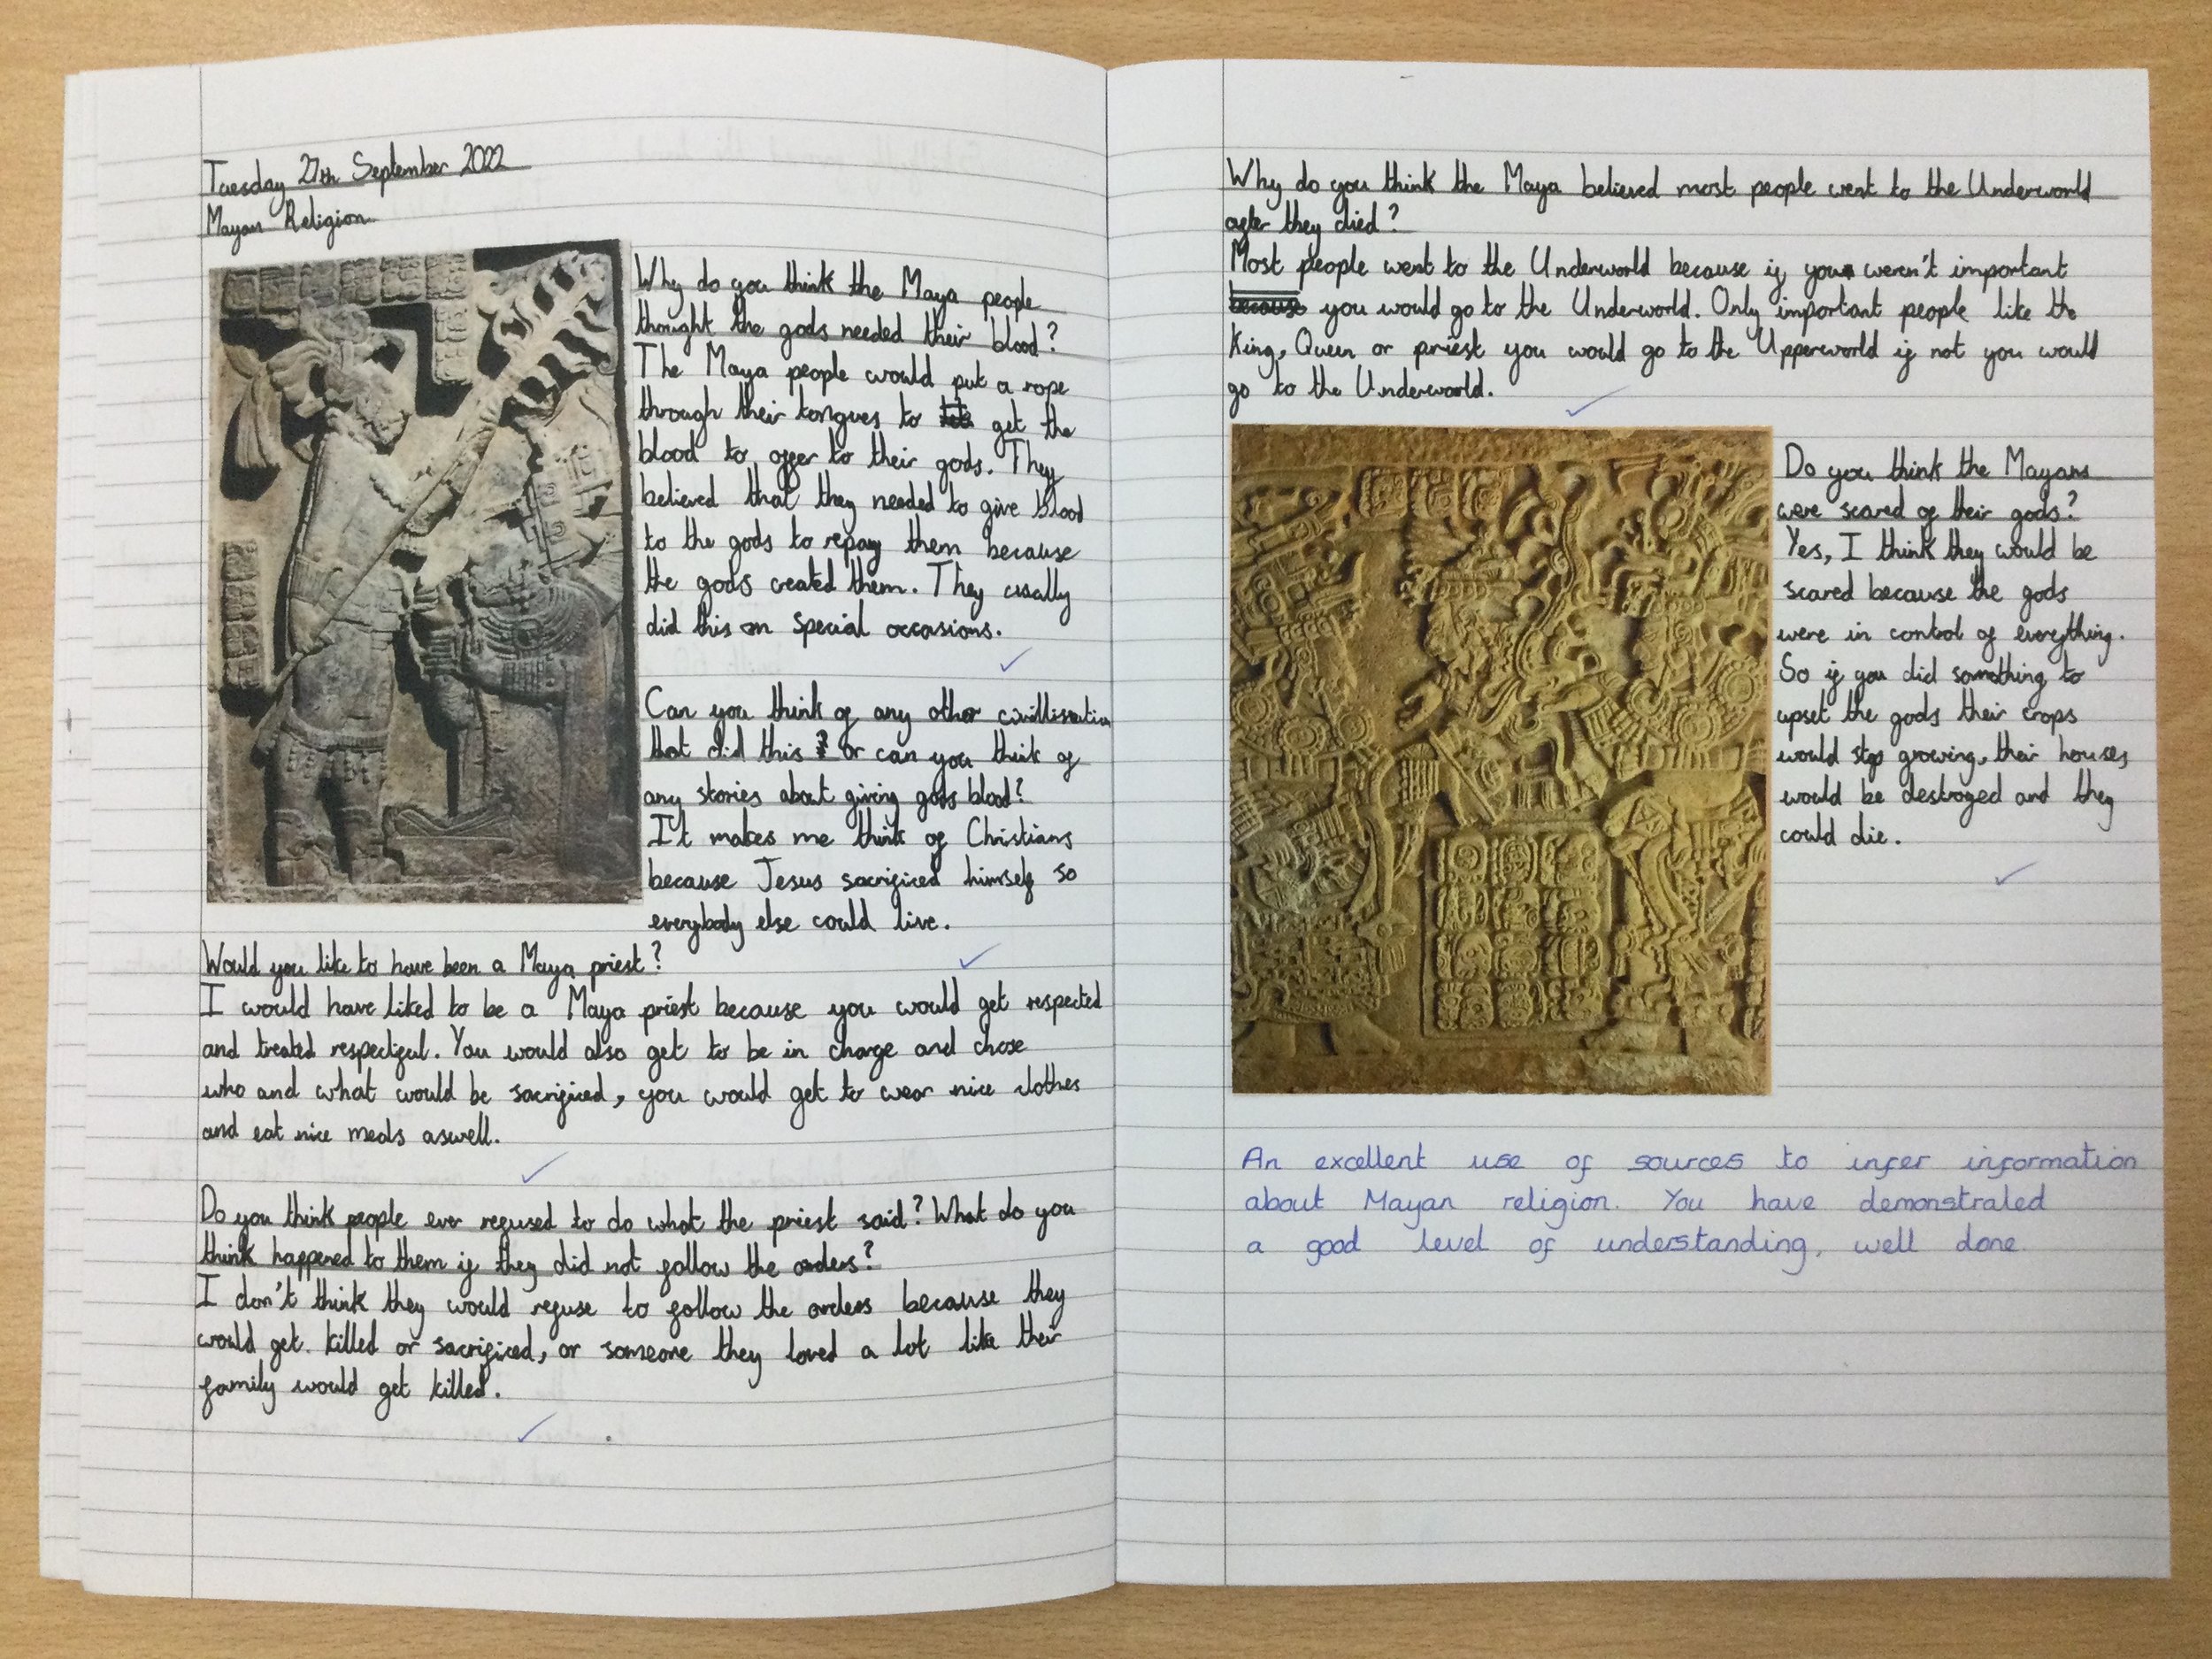 Tuesday 27th September 2022
Mayan Religion
Why do you think the Maya people
thought the gods needed their blood?
The Maya people would put a rope
through their tongues to get the
blood to offer to their gods. They
believed that they needed to give blood
to the gods to repay them because
the gods created them. They usally
did this on special occasions.
Can you think of any other civillisation
that did this? or can you think of
any stories about giving gods blood?
It makes me think of Christians
because Jesus sacrificed himself so
everybody else could live.
Would you like to have been a Maya priest?
I would have liked to be a Maya priest because you would get respected
and treated respectful. You would also get to be in charge and chose
who and what would be sacrificed, you would get to wear nice clothes
and eat nice meals aswell.
Do you think people ever refused to do what the priest said? What do you
think happened to them if they did not follow the orders?
I don't think they would refuse to follow the orders because they
would get killed or sacrificed, or someone they loved a lot like their
family would get killed.
Why do you think the Maya believed most people went to the Underworld
after they died?
Most people went to the Underworld because if you weren't important
because you would go to the Underworld. Only important people like the
King, Queen or priest you would go to the Upperworld if not you would
go to the Underworld.
Do you think the Mayans
were scared of their gods?
Yes, I think they would be
scared because the gods
were in control of everything.
So if you did something to
upset the gods their crops
would stop growing, their houses
would be destroyed and they
could die.
An excellent use of sources to infer information
about Mayan religion. You have demonstrated
a good level of understanding, well done